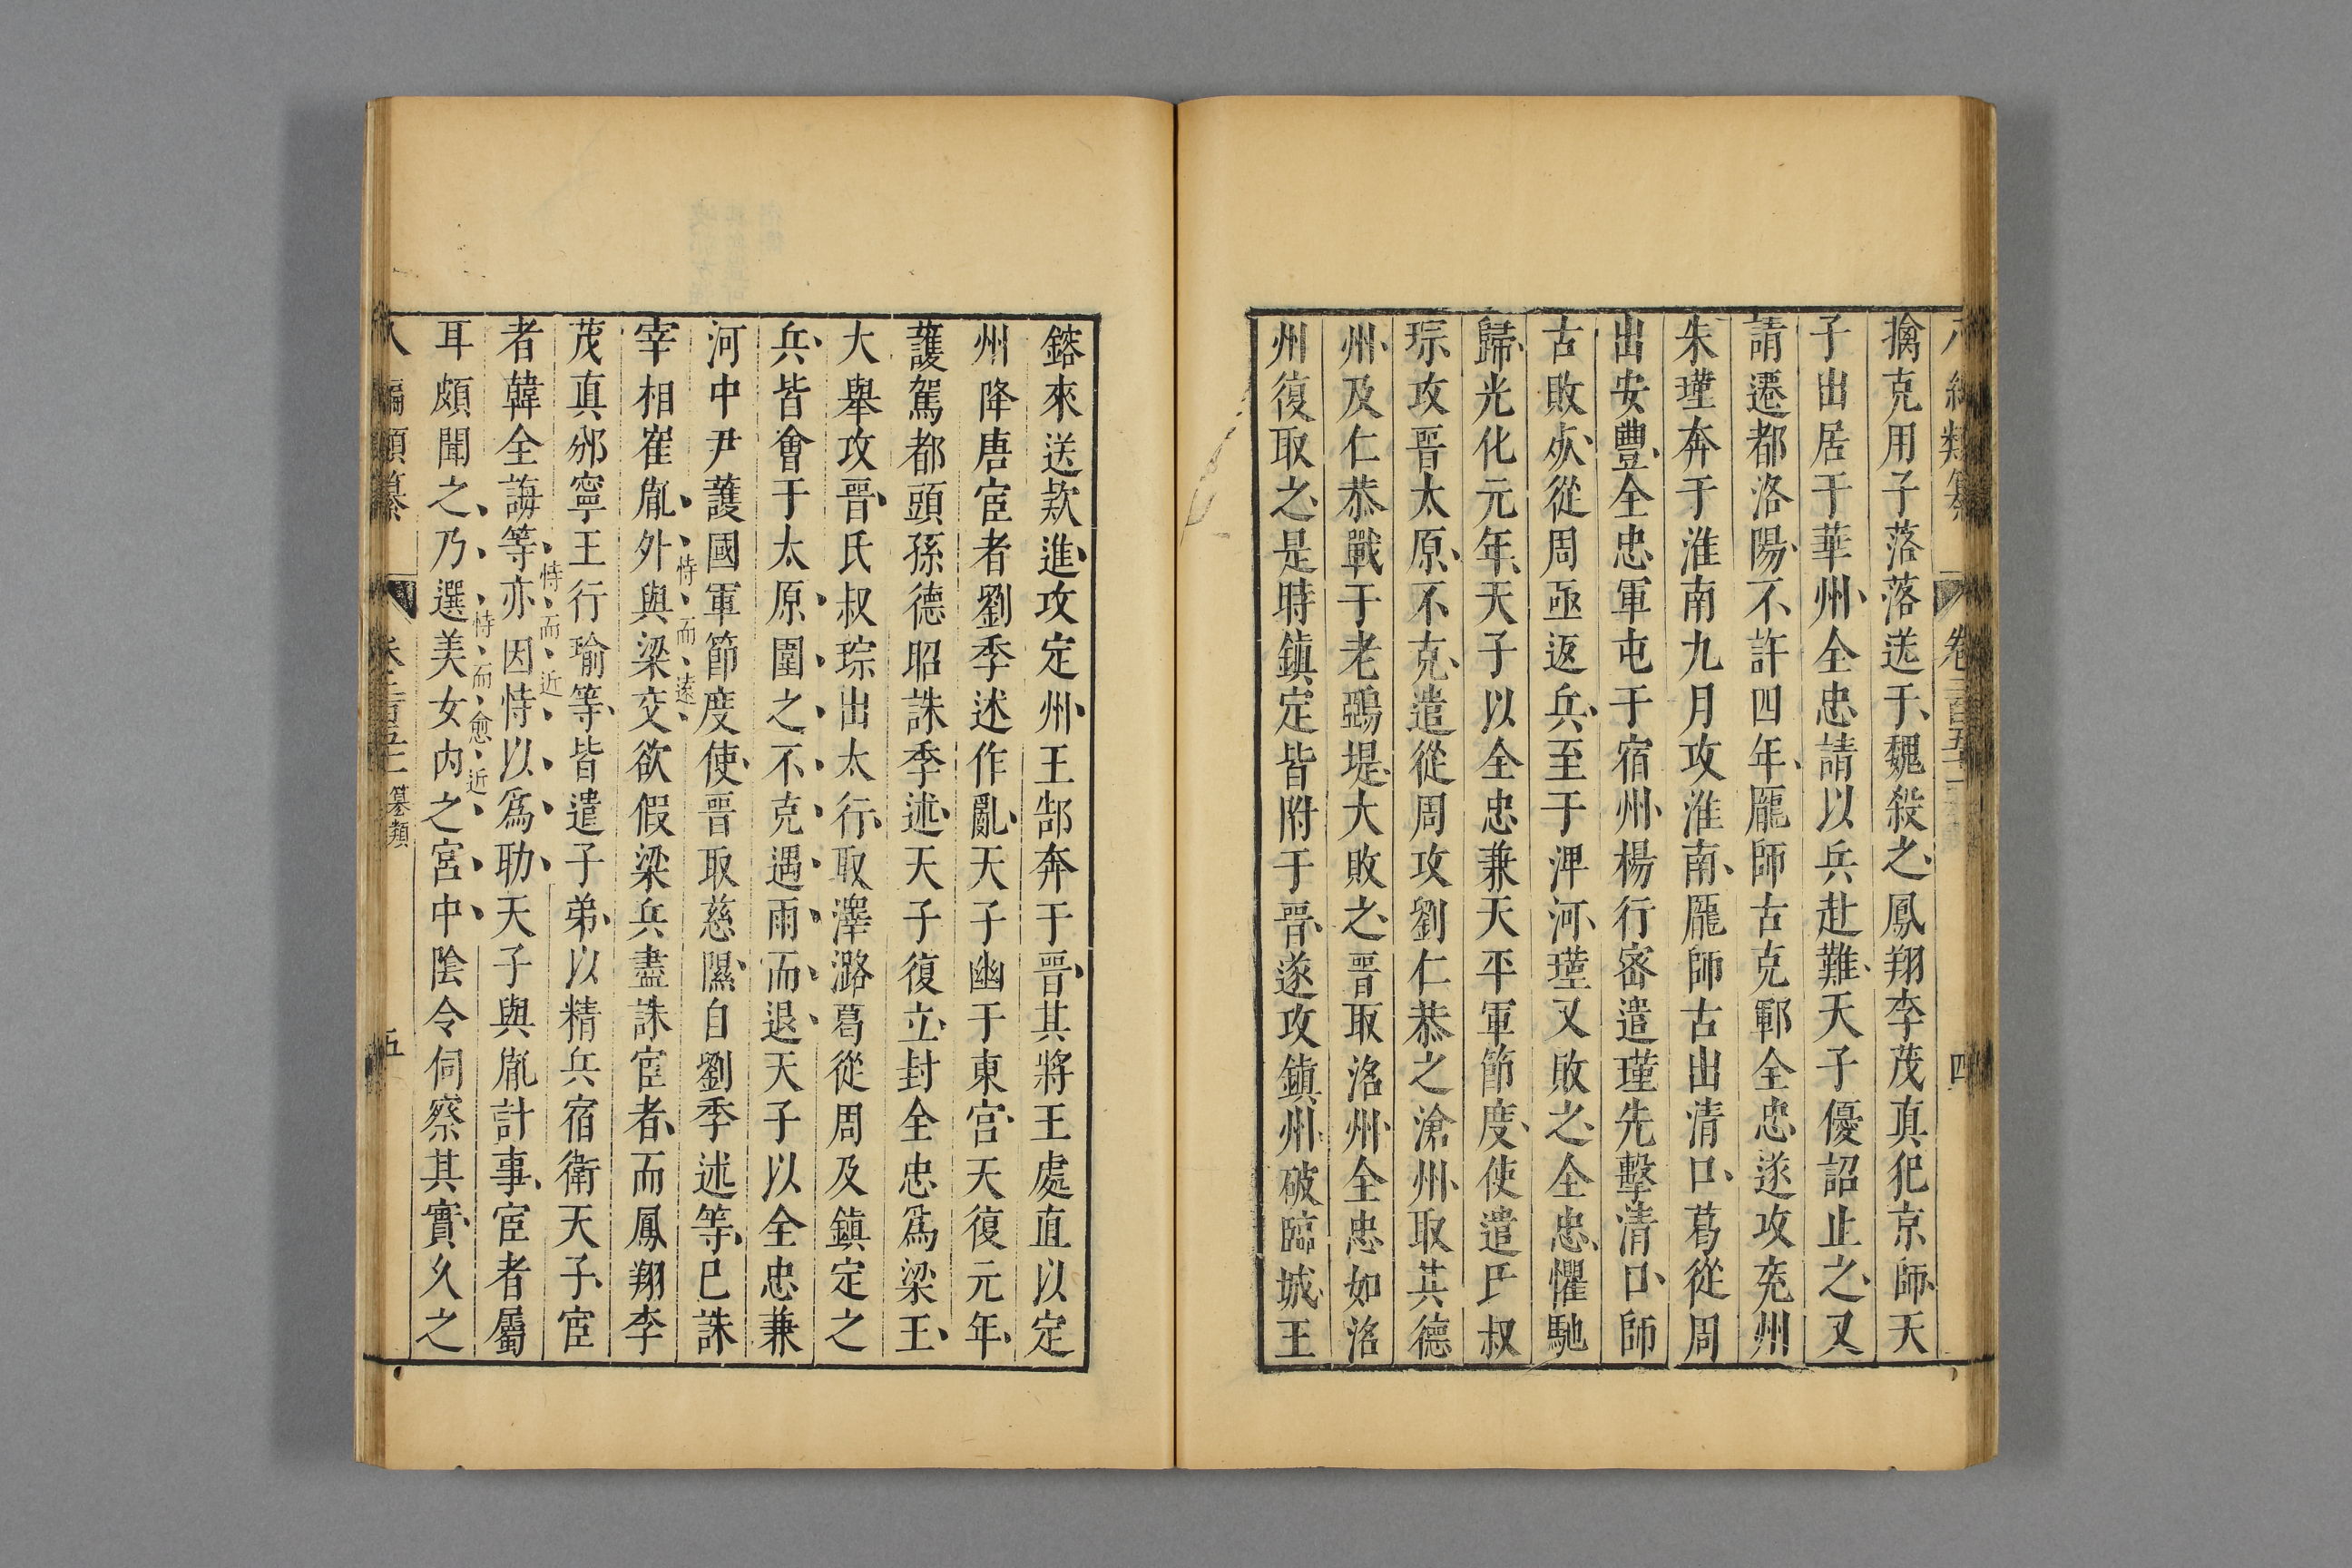 擒克用子落落送于魏殺之鳳翔李茂真犯京師天
子出居于華州全忠請以兵赴難天子優詔止之又
請遷都洛陽不許四年龐師古克鄆全忠遂攻兖州
朱瑾奔于淮南九月攻淮南龐師古出清口葛從周
出安豐全忠軍屯于宿州楊行密遣瑾先擊清口師
古敗死從周亟返兵至于渒河瑾又敗之全忠懼馳
歸光化元年天子以全忠兼天平軍節度使遣氏叔
琮攻晋太原不克遣從周攻劉仁恭之滄州取其德
州及仁恭戰于老鵶堤大敗之晋取洺州全忠如洺
州復取之是時鎮定皆附于晋遂攻鎮州破臨城王
鎔來送款進攻定州王郜奔于晋其將王處直以定
州降唐宦者劉季述作亂天子幽于東宫天復元年
護駕都頭孫德昭誅季述天子復立封全忠爲梁王
大舉攻晋氏叔琮出太行取澤潞葛從周及鎮定之
兵皆會于太原圍之不克遇雨而退天子以全忠兼
河中尹護國軍節度使晋取慈隰自劉季述等已誅
宰相崔胤外與梁交欲假梁兵盡誅宦者而鳳翔李
恃而遠
茂真邠寧王行瑜等皆遣子弟以精兵宿衛天子宦
者韓全誨等亦因恃以爲助天子與胤計事宦者屬
恃而近
耳頗聞之乃選美女内之宮中陰令伺察其實久之
恃而愈近
八編類纂
纂類
五